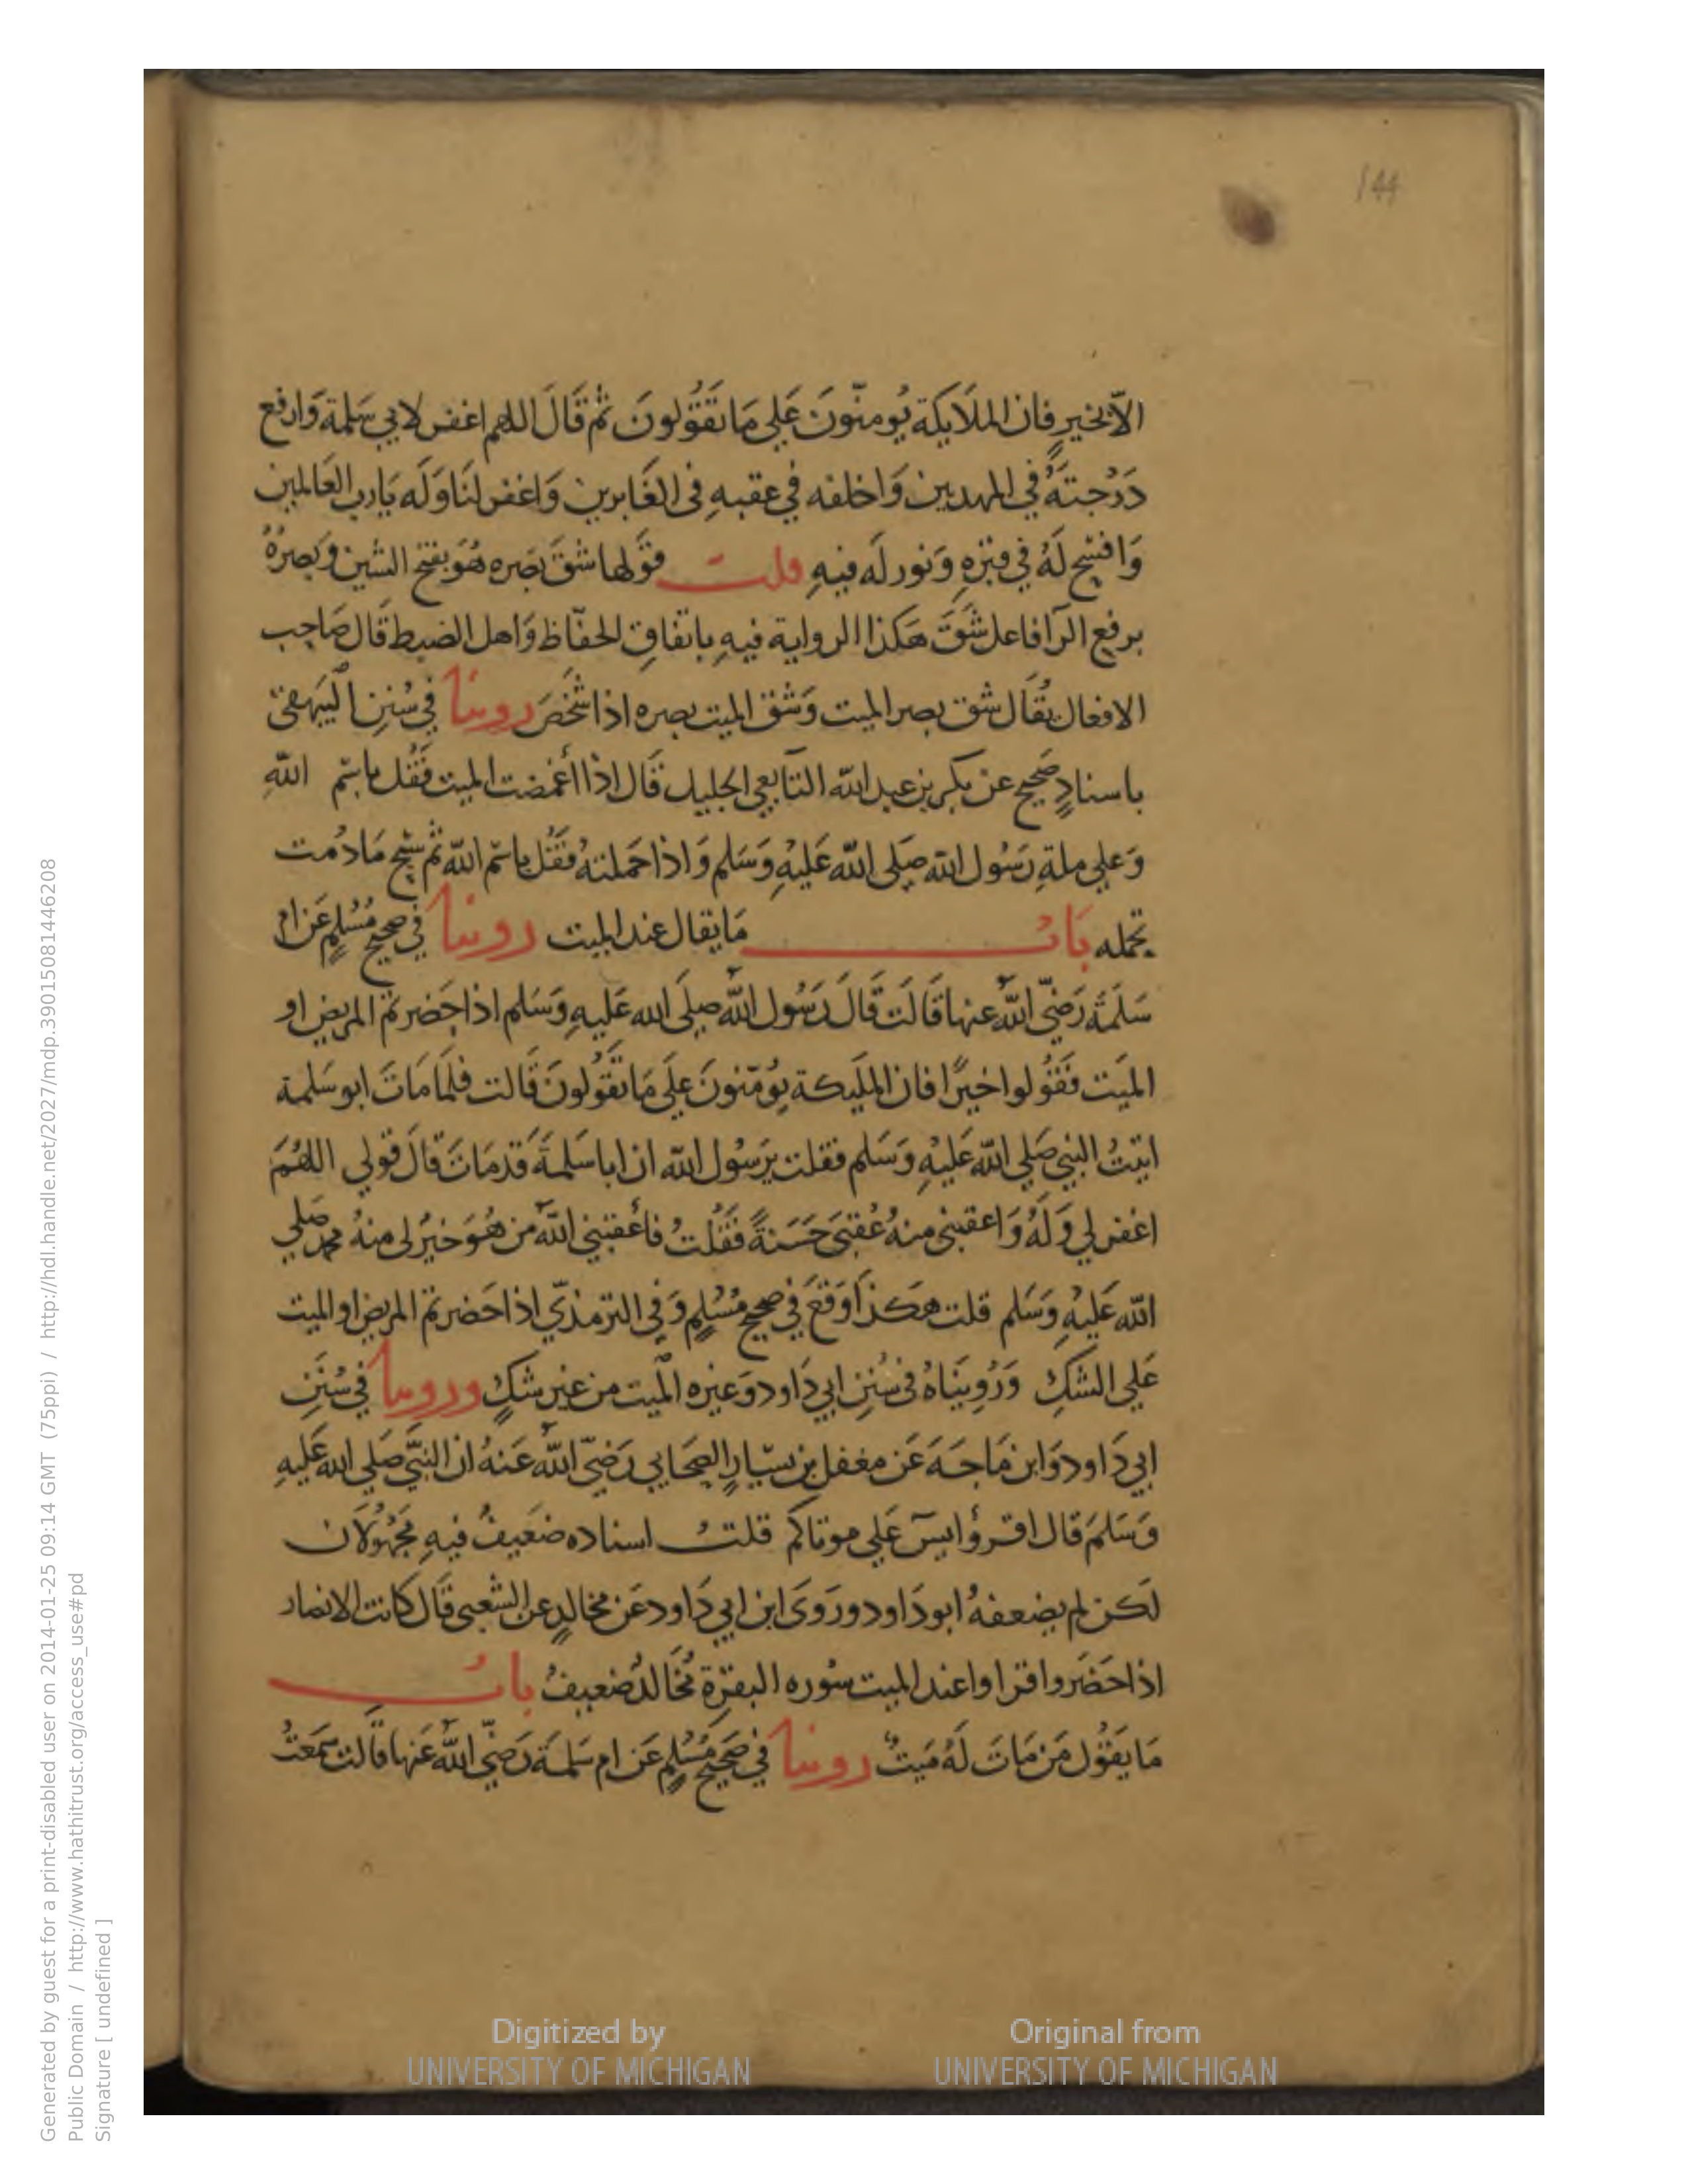 144
الّا بخيرٍ فان الملَايكة يُومنّونَ عَلي مَا تقَوُلونَ ثم قَالَ اللهم اغفر لابي سَلمة وَارفع
دَرَجتَهُ في المهديين وَاخلفه في عقبهِ فى الغَابرين وَاغفر لنَا وَلَه يَا رب العَالمين
وَافسح لَهُ في قبرهِ وَنور لَه فيهِ قلت قوَلها شقَ بَصره هُوَ بفتح الشين وَبصرُهُ
برفع الرآ فاعل شَقَ هَكذا الرواية فيهِ باتفاقِ الحفّاظ وَاهل الضبط قَال صَاحِب
الافعال يُقَال شق بصر الميت وَشق الميت بصره اذا شَخَصَ روينا في سُنَنِ البَيهقى
باسنادٍ صَحِيحٍ عَن بَكر بن عبد اللّه التَابعي الجليل قَال اذا أغمضت الميت فَقُل باسْم اللّهِ
وَعلي ملةِ رَسُول اللّه صَلى اللّه عَليْهِ وَسَلم وَاذا حَملتهُ فَقُل باسْم اللّه ثم سَبِّح مَا دُمت
تحمله بَاب مَا يقال عند الميت روينا في صحيح مُسْلمٍ عَن ام
سَلَمَةَ رَضيّ اللّه عنها قَالَت قَالَ رَسُول اللّه صلَى الله عَليهِ وَسَلم اذا حَضرتم المريض او
الميَت فَقوُلوا خيرًا فان المليكة يؤمّنونَ عَلَي مَا تقَوُلونَ قَالت فلَمَا مَاتَ ابو سَلمة
اتيتُ النبي صَلي اللّه عَليْهِ وَسَلم فقلت يَرسُول اللّه ان ابا سَلمةَ قَد مَاتَ قَالَ قولي اللهُمَ
اغفر لي وَلَهُ وَاعقبني منهُ عُقبَى حَسَنةً فَقُلتُ فاعقبني اللّه من هُوَ خيرٌ لى منهُ محمد صَلي
اللّه عَليْهِ وَسَلم قلت هَكذا وَقعَ في صحيح مُسْلمٍ وَفي الترمذيّ اذا حَضرتم المريض او الميت
عَلي الشكِ وَرُوِينَاهُ في سُنَنِ ابي دَاود وَغيره الميت من غير شكٍ وروينا في سُنَنِ
ابي دَاود وَابن مَاجَهَ عَن مغفل بن يسَارٍ الصّحَابي رَضيّ اللّه عَنهُ ان النبَيّ صَلي الله عَليهِ
وَسَلمَ قال اقرؤا يسَ عَلي موتاكم قلت اسناده ضَعيفٌ فيهِ مَجهُولَان
لَكن لم يضعفهُ ابو دَاود وروَى ابن ابي دَاود عَن مخالدٍ عن الشعبى قَال كانت الانصار
اذا حَضَروا قراوا عند الميت سُوره البقرة مُخَالدٌ ضعيفٌ باب
مَا يقوُل مَن مَاتَ لَهُ مَيتٌ روينا في صَحِيح مُسْلمٍ عَن ام سَلمةَ رَضيّ اللّه عَنها قَالت سَمعتُ
Digitized by
UNIVERSITY OF MICHIGAN
Original from
UNIVERSITY OF MICHIGAN
Generated by guest for a print-disabled user on 2014-01-25 09:14 GMT (75ppi) / http://hdl.handle.net/2027/mdp.39015081446208
Public Domain / http://www.hathitrust.org/access_use#pd
Signature [ undefined ]